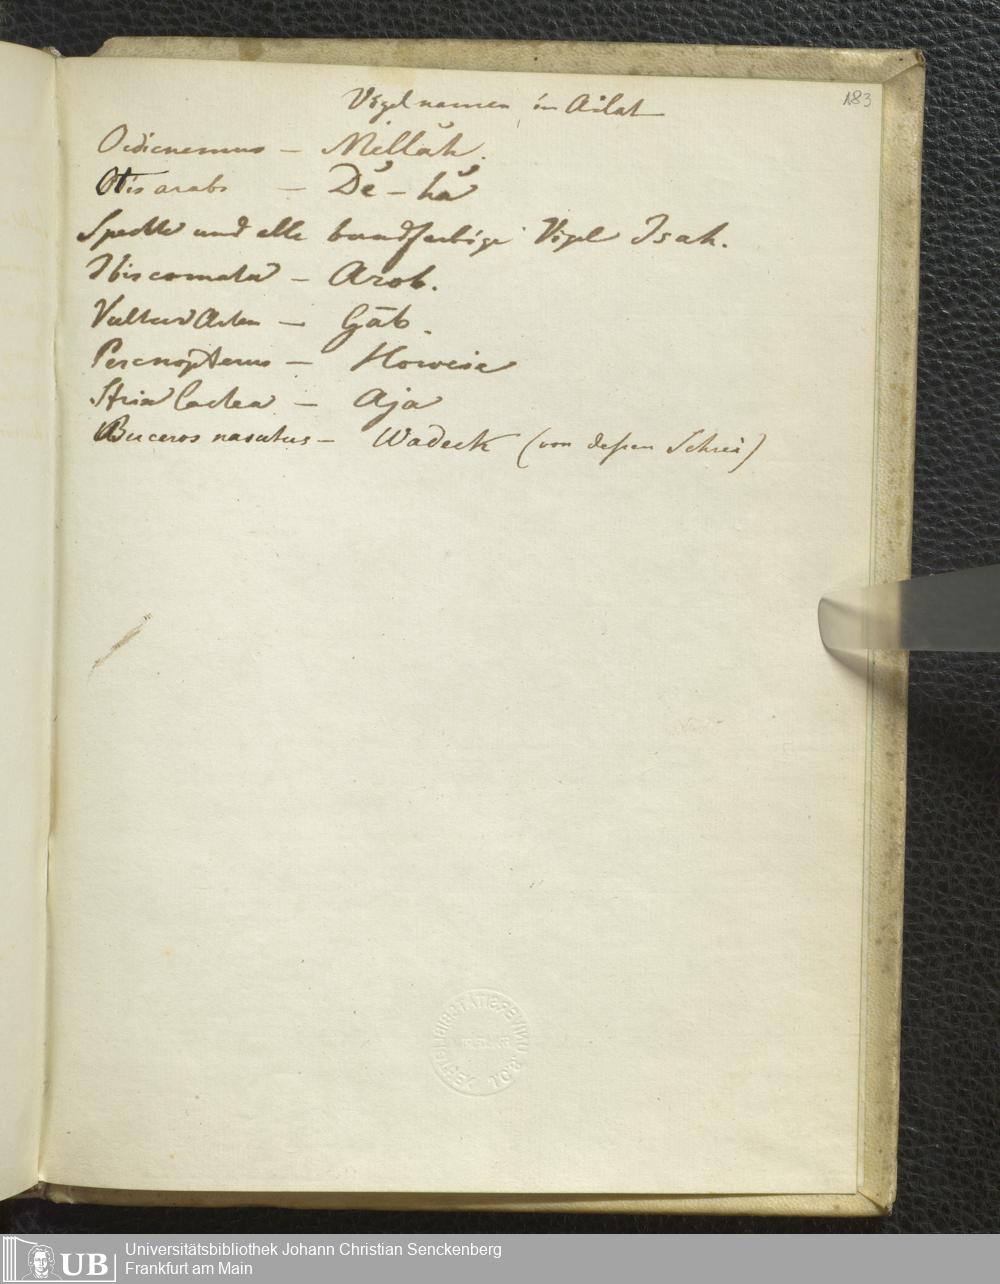 Vögelnamen in Ailat
183
Oedicnemus – Mellăh.
Otis arabs – Dĕ-hă
Spechte und alle buntfarbige Vögel Isak.
Ibis comata – Arob.
Vultur Arten – Gāb.
Percnopterus – Horoeia
Strix lactea – Aja
Buceros nasutus – Wadeck (von deßen Schrei)
UB
Universitätsbibliothek Johann Christian Senckenberg
Frankfurt am Main